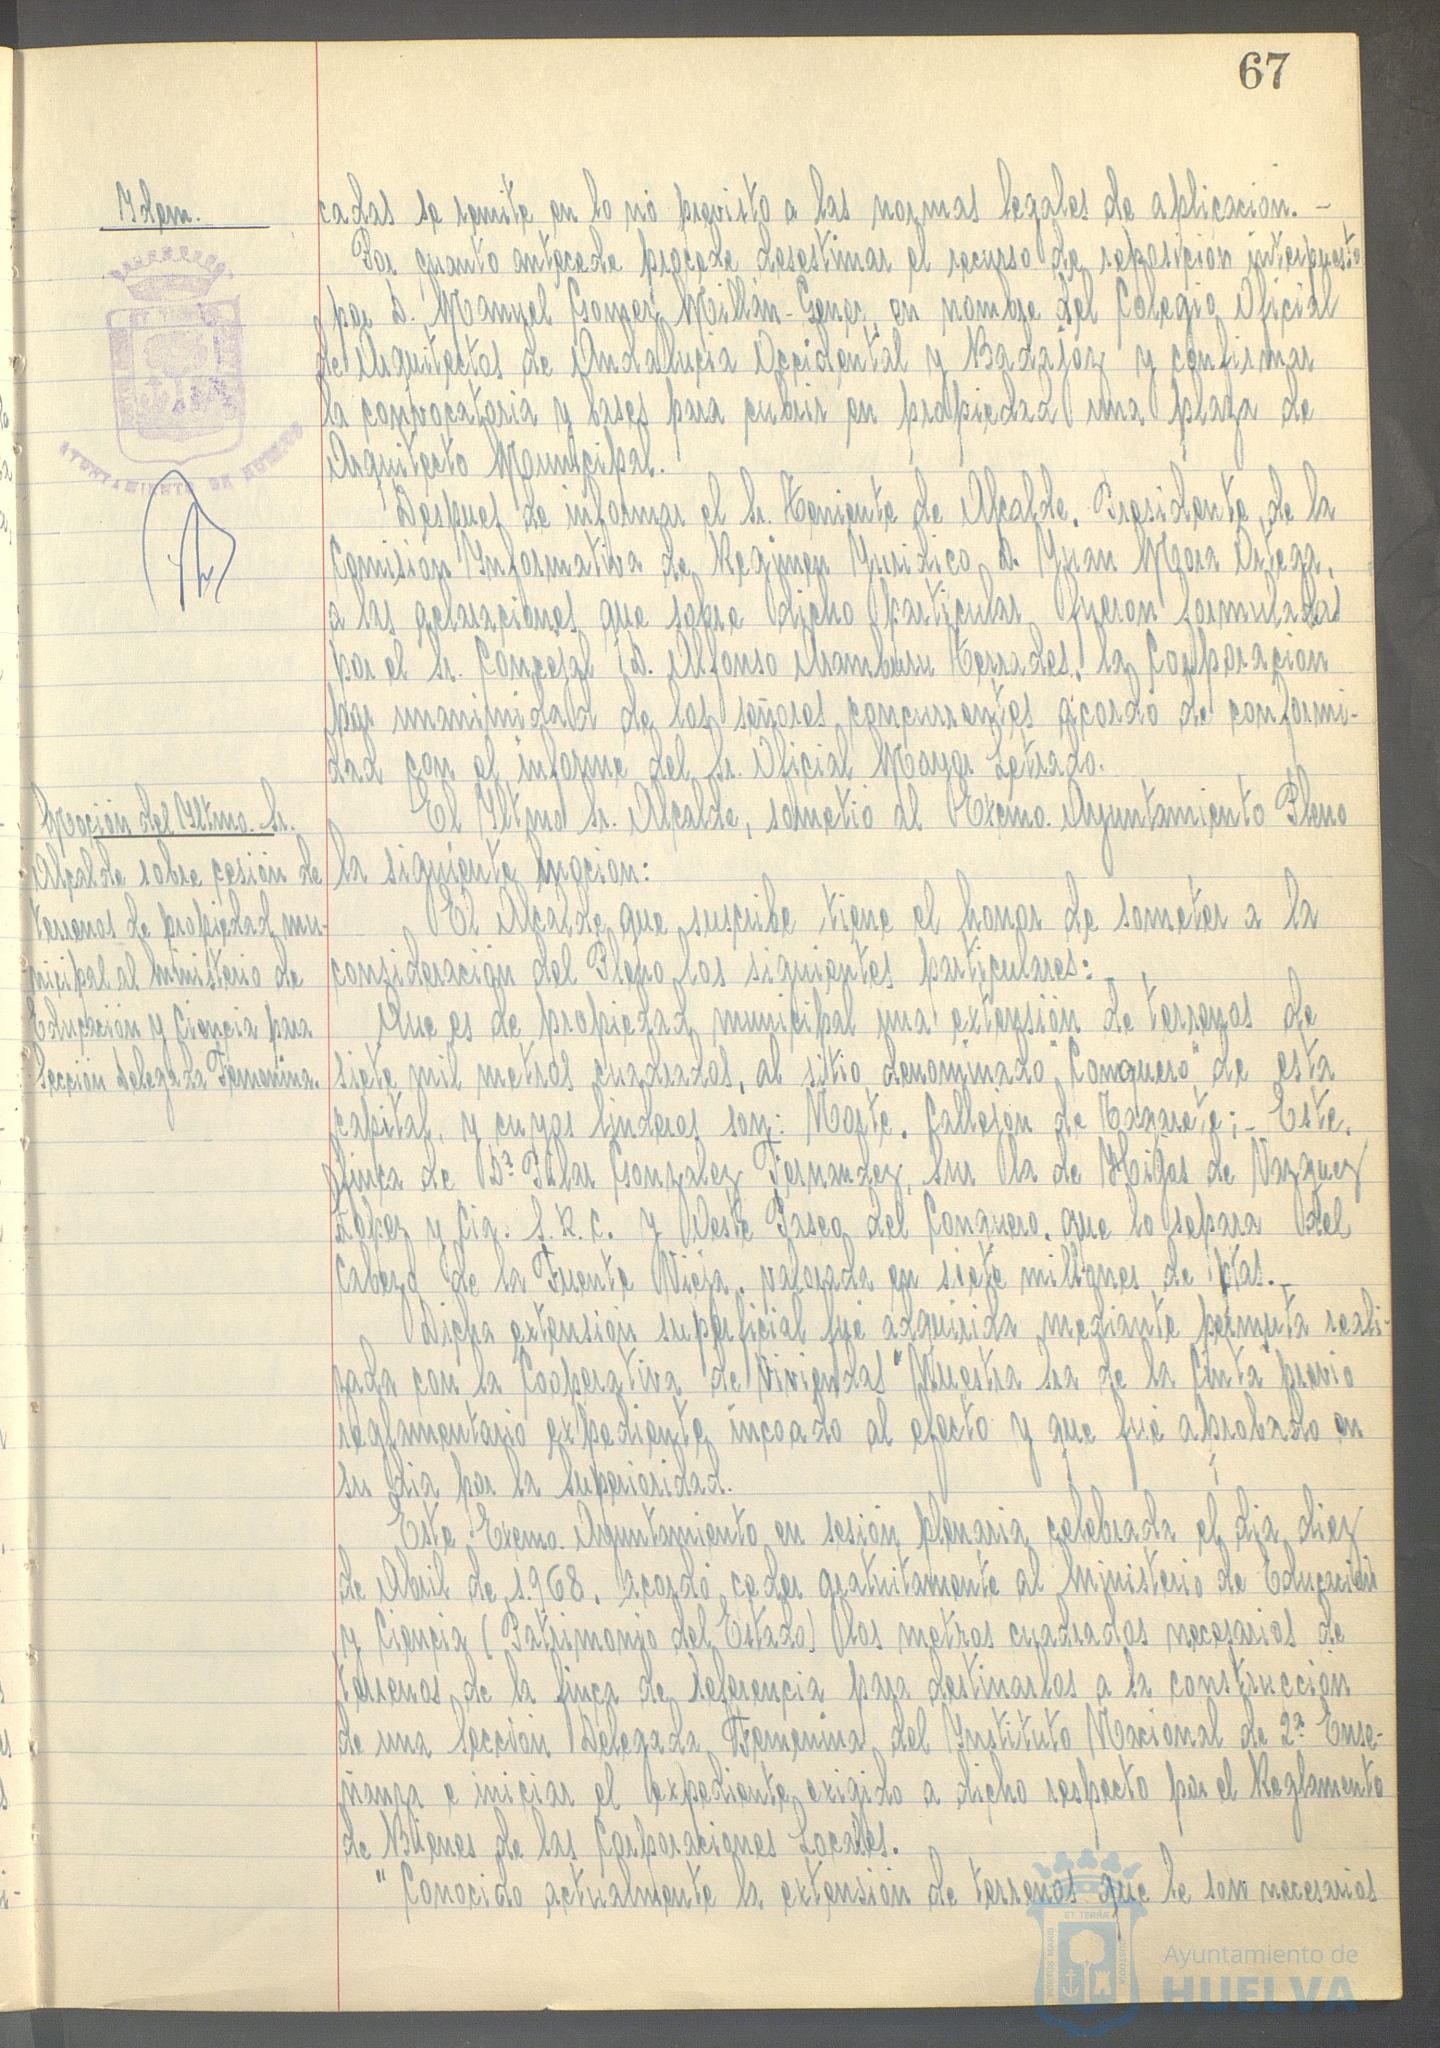 67
Ydem.
cadas se remite en lo no previsto a las normas legales de aplicación. -
Por cuanto antecede procede desestimar el recurso de reposición interpuesto
por D. Manuel Gomez Millán-Gener, en nombre del Colegio Oficial
de Arquitectos de Andalucia Occidental y Badajoz y confirmar
la convocatoria y bases para cubrir en propiedad una plaza de
Arquitecto Municipal.
AYUNTAMIENTO DE HUELVA
Despues de informar el Sr. Teniente de Alcalde, Presidente de la
Comisión Informativa de Regimen Yuridico D. Yuan Mora Ortega,
a las aclaraciones que sobre dicho particular fueron formuladas
por el Sr. Concejal D. Alfonso Aramburu Terrades, la Corporación
por unanimidad de los señores concurrentes acordó de conformi-
dad con el informe del Sr. Oficial Mayor Letrado.
Moción del Yltmo. Sr.
Alcalde sobre cesión de
terrenos de propiedad mu-
nicipal al Ministerio de
Educación y Ciencia para
Sección Delegada Femenina.
El Yltmo Sr. Alcalde, sometió al Excmo. Ayuntamiento Pleno
la siguiente moción:
El Alcalde que suscribe tiene el honor de someter a la
consideración del Pleno los siguientes particulares:
Que es de propiedad municipal una extensión de terrenos de
siete mil metros cuadrados, al sitio denominado "Conquero" de esta
capital, y cuyos linderos son: Norte, Callejón de ; - Este,
finca de Dª Pilar Gonzalez Fernandez, Sur la de Hijos de Vazquez
Lopez y Cia. S.R.C. y Oeste Paseo del Conquero, que lo separa del
Cabezo de la Fuente Vieja, valorada en siete millones de ptas.-
Dicha extensión superficial fué adquirida mediante permuta reali-
zada con la Cooperativa de Viviendas "Nuestra Sra de la Cinta" previo
reglamentario expediente incoado al efecto y que fué aprobado en
su dia por la Superioridad.
Este Excmo. Ayuntamiento en sesión plenaria celebrada el dia diez
de Abril de 1.968, acordó ceder gratuitamente al Ministerio de Educación
y Ciencia (Patrimonio del Estado) los metros cuadrados necesarios de
terrenos de la finca de referencia para destinarlos a la construcción
de una Sección Delegada Femenina del Ynstituto Nacional de 2ª Ense-
ñanza e iniciar el expediente exigido a dicho respecto por el Reglamento
de Bienes de las Corporaciones Locales.
"Conocido actualmente la extensión de terrenos que le son necesarios
Ayuntamiento de
HUELVA